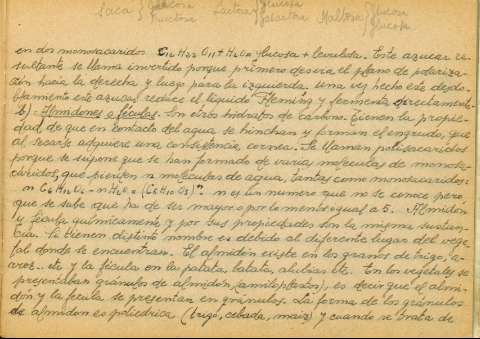 Saca { Glucosa Fructosa Lactosa { Glucosa Galactosa Maltosa { Glucosa Glucosa
en dos monosacaridos C12 H22 O11 + H2O = glucosa + levulosa. Este azucar re-
sultante se llama invertido porque primero desvía el plano de polariza-
ción hacia la derecha y luego para la izquierda. Una vez hecho este desdo-
blamiento este azucar reduce el líquido Flemíng y fermenta directamente
b) Almidones o féculas. Son otros hidratos de carbono. Tienen la propie-
dad, de que en contacto del agua se hinchan y forman el engrudo, que
al secarse adquiere una consistencia cornea. Se llaman polisacaridos
porque se supone que se han formado de varias moleculas de monosa-
cáridos, que pierden n moleculas de agua, tantas como monosacaridos:
n C6 H12 O6 - n H2O = (C6 H10 O5)n n es un numero que no se conoce pero
que se sabe que ha de ser mayor o por lo menos igual a 5. Almidón
y fécula químicamente, y por sus propiedades son la misma sustan-
cia. Si tienen distinto nombre es debido al diferente lugar del vege-
tal donde se encuentran. El almidón existe en los granos de trigo, a-
rroz.. etc y la fécula en la patata, batata, alubias etc. En los vegetales se
presentaban gránulos de almidón (amiloplastos), es decir que el almi-
dón y la fecula se presentan en gránulos. La forma de los gránulos
de almidón es poliedrica (trigo, cebada, maiz) y cuando se trata de